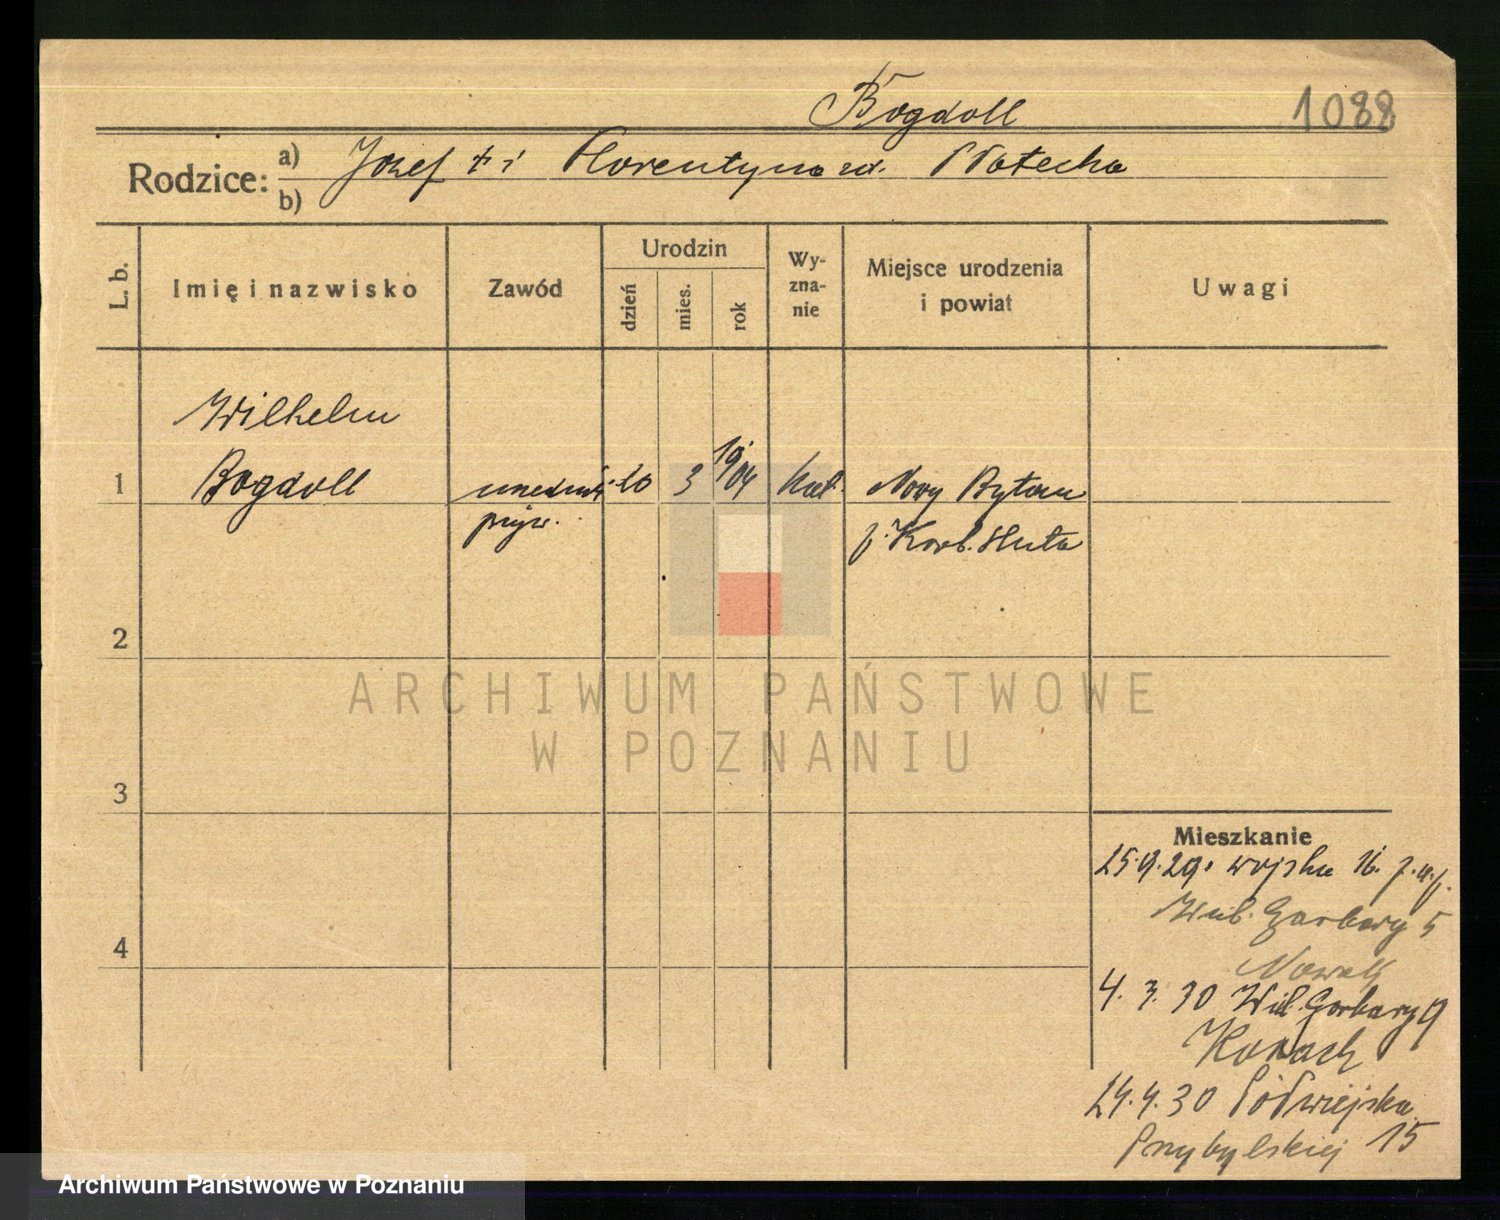 Bogdoll
1088
Rodzice:
a) Józef + i Florentyna zd. Płatecka
b)
L. b.
Imię i nazwisko
Zawód
Urodzin
dzień
mies.
rok
Wy-
zna-
nie
Miejsce urodzenia
i powiat
Uwagi
Wilhelm
1 Bogdoll 20 3 1904 kat. Nowy Bytom
pryw. p. Król. Huta
2
ARCHIWUM PAŃSTWOWE
W POZNANIU
3
Mieszkanie
25.9.29. wojsku 16.
Garbary 5
4
Nowak
4. 3. 30 Wiel. Garbary 9
24.4.30 Półwiejska
Przybylskiej 15
Archiwum Państwowe w Poznaniu